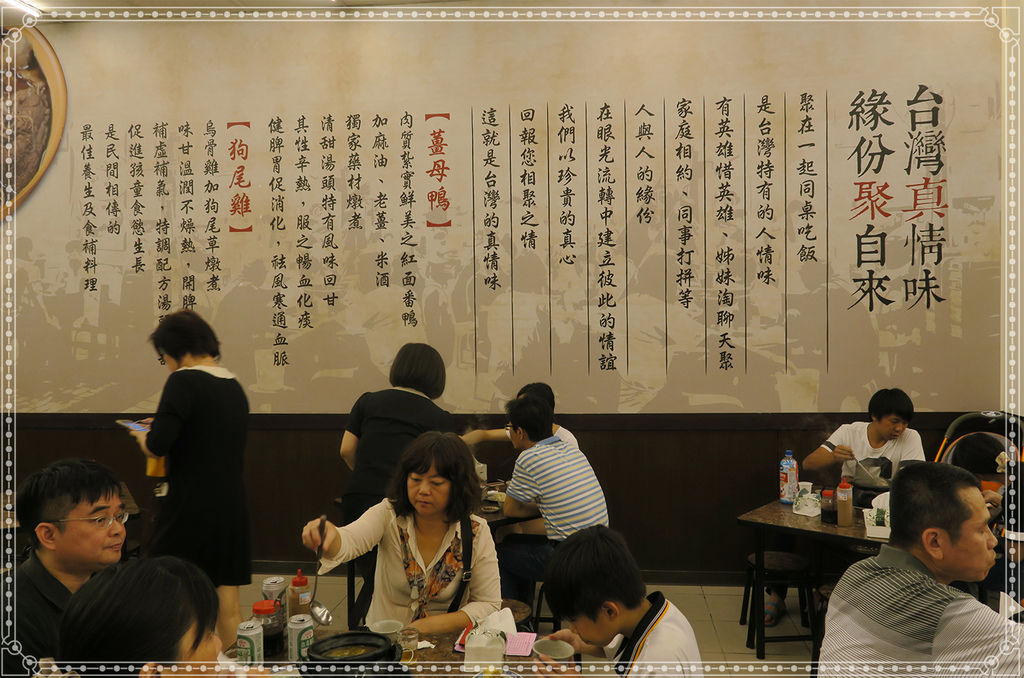 台灣真情味
緣份聚自來
聚在一起同桌吃飯
是台灣特有的人情味
有英雄惜英雄、姊妹淘聊天聚
家庭相約、同事打拼等
人與人的緣份
在眼光流轉中建立彼此的情誼
我們以珍貴的真心
回報您相聚之情
這就是台灣的真情味
【薑母鴨】
肉質紮實鮮美之紅面番鴨
加麻油、老薑、米酒
獨家藥材燉煮
清甜湯頭特有風味回甘
其性辛熱，服之暢血化痰
健脾胃促消化，祛風寒通血脈
【狗尾雞】
烏骨雞加狗尾草燉煮
味甘溫潤不燥熱，開脾
補虛補氣，特調配方湯
促進孩童食慾生長
是民間相傳的
最佳養生及食補料理